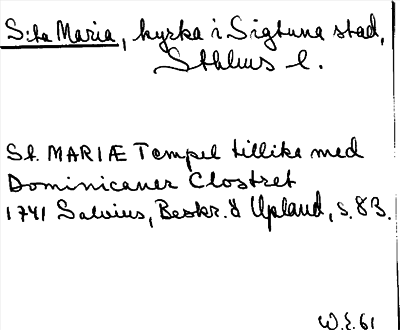 S:ta Maria, kyrka i Sigtuna stad,
Sthlms l.
St. MARIÆ Tempel tillika med
Dominicaner Clostret
1741 Salvius, Beskr. ö Upland, s. 83.
W.E. 61